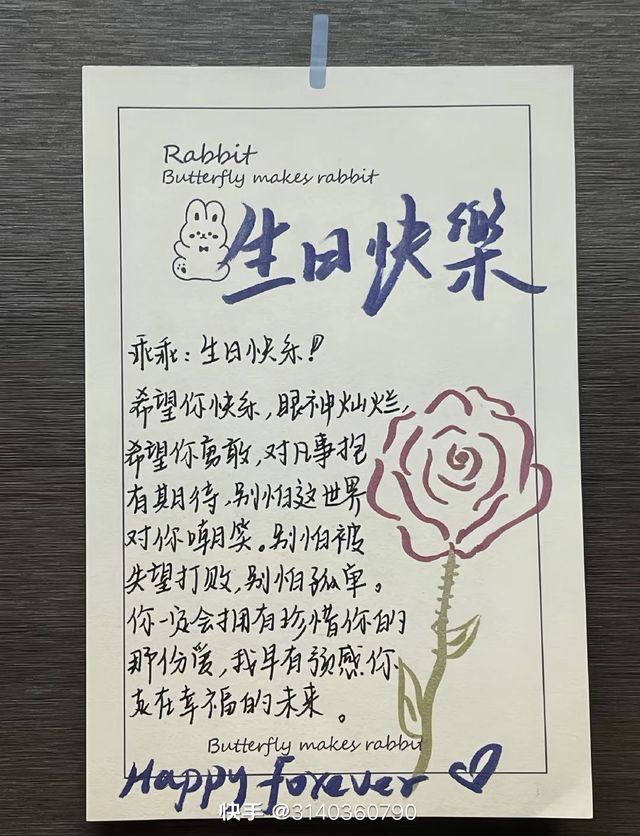 Rabbit
Butterfly makes rabbit
生日快樂
乖乖：生日快乐！
希望你快乐，眼神灿烂，
希望你勇敢，对凡事抱
有期待，别怕这世界
对你嘲笑。别怕被
失望打败，别怕孤单。
你一定会拥有珍惜你的
那份爱，我早有预感你
在幸福的未来。
Butterfly makes rabbit
Happy forever
快手 @3140360790